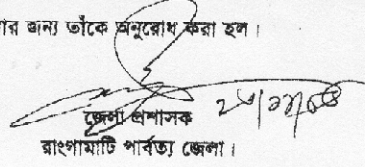 র জন্য তাঁকে অনুরোধ করা হল।
জেলা প্রশাসক
রাংগামাটি পার্বত্য জেলা।